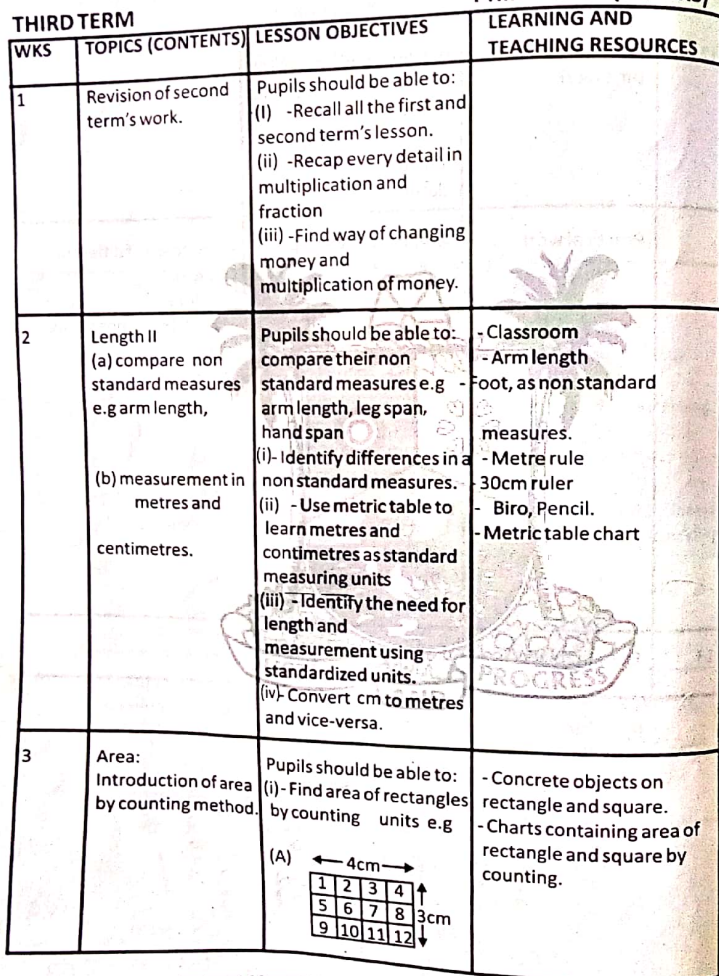 THIRD TERM
WKS
TOPICS (CONTENTS)
LESSON OBJECTIVES
LEARNING AND
TEACHING RESOURCES
1
Revision of second
term's work.
Pupils should be able to:
(I) -Recall all the first and
second term's lesson.
(ii) -Recap every detail in
multiplication and
fraction
(iii) -Find way of changing
money and
multiplication of money.
2
Length II
(a) compare non
standard measures
e.g arm length,
(b) measurement in
metres and
centimetres.
Pupils should be able to:
compare their non
standard measures e.g
arm length, leg span,
hand span
(i)- Identify differences in a
non standard measures.
(ii) - Use metric table to
learn metres and
contimetres as standard
measuring units
(iii) - Identify the need for
length and
measurement using
standardized units.
(iv)- Convert cm to metres
and vice-versa.
- Classroom
- Arm length
- Foot, as non standard
measures.
- Metre rule
- 30cm ruler
- Biro, Pencil.
- Metric table chart
PROGRESS
3
Area:
Introduction of area
by counting method.
Pupils should be able to:
(i)- Find area of rectangles
by counting units e.g
(A) 4cm
1 2 3 4
5 6 7 8 3cm
9 10 11 12
- Concrete objects on
rectangle and square.
- Charts containing area of
rectangle and square by
counting.